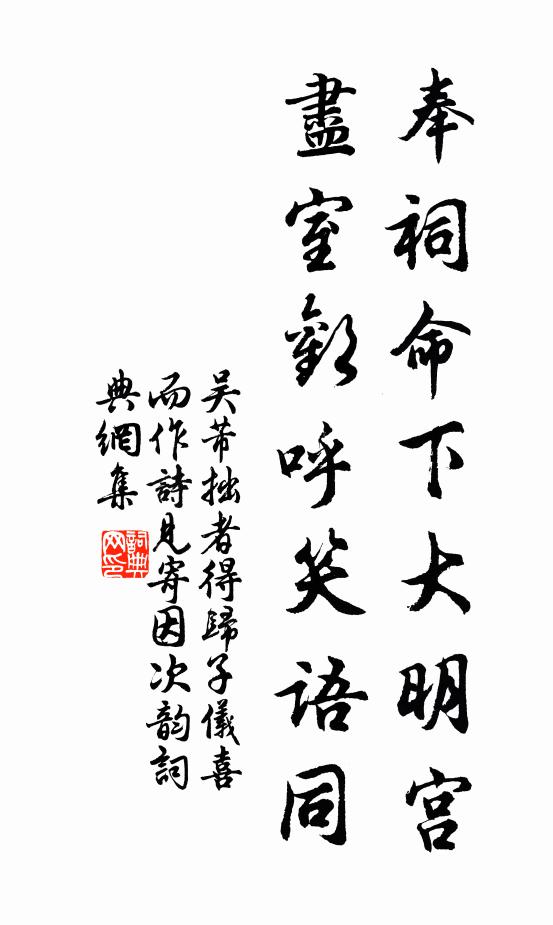 奉祠命下大明宫
盡室歡呼笑語同
吴芾拙者得歸子儀喜
而作詩見寄因次韵詞
典網集
詞典网印